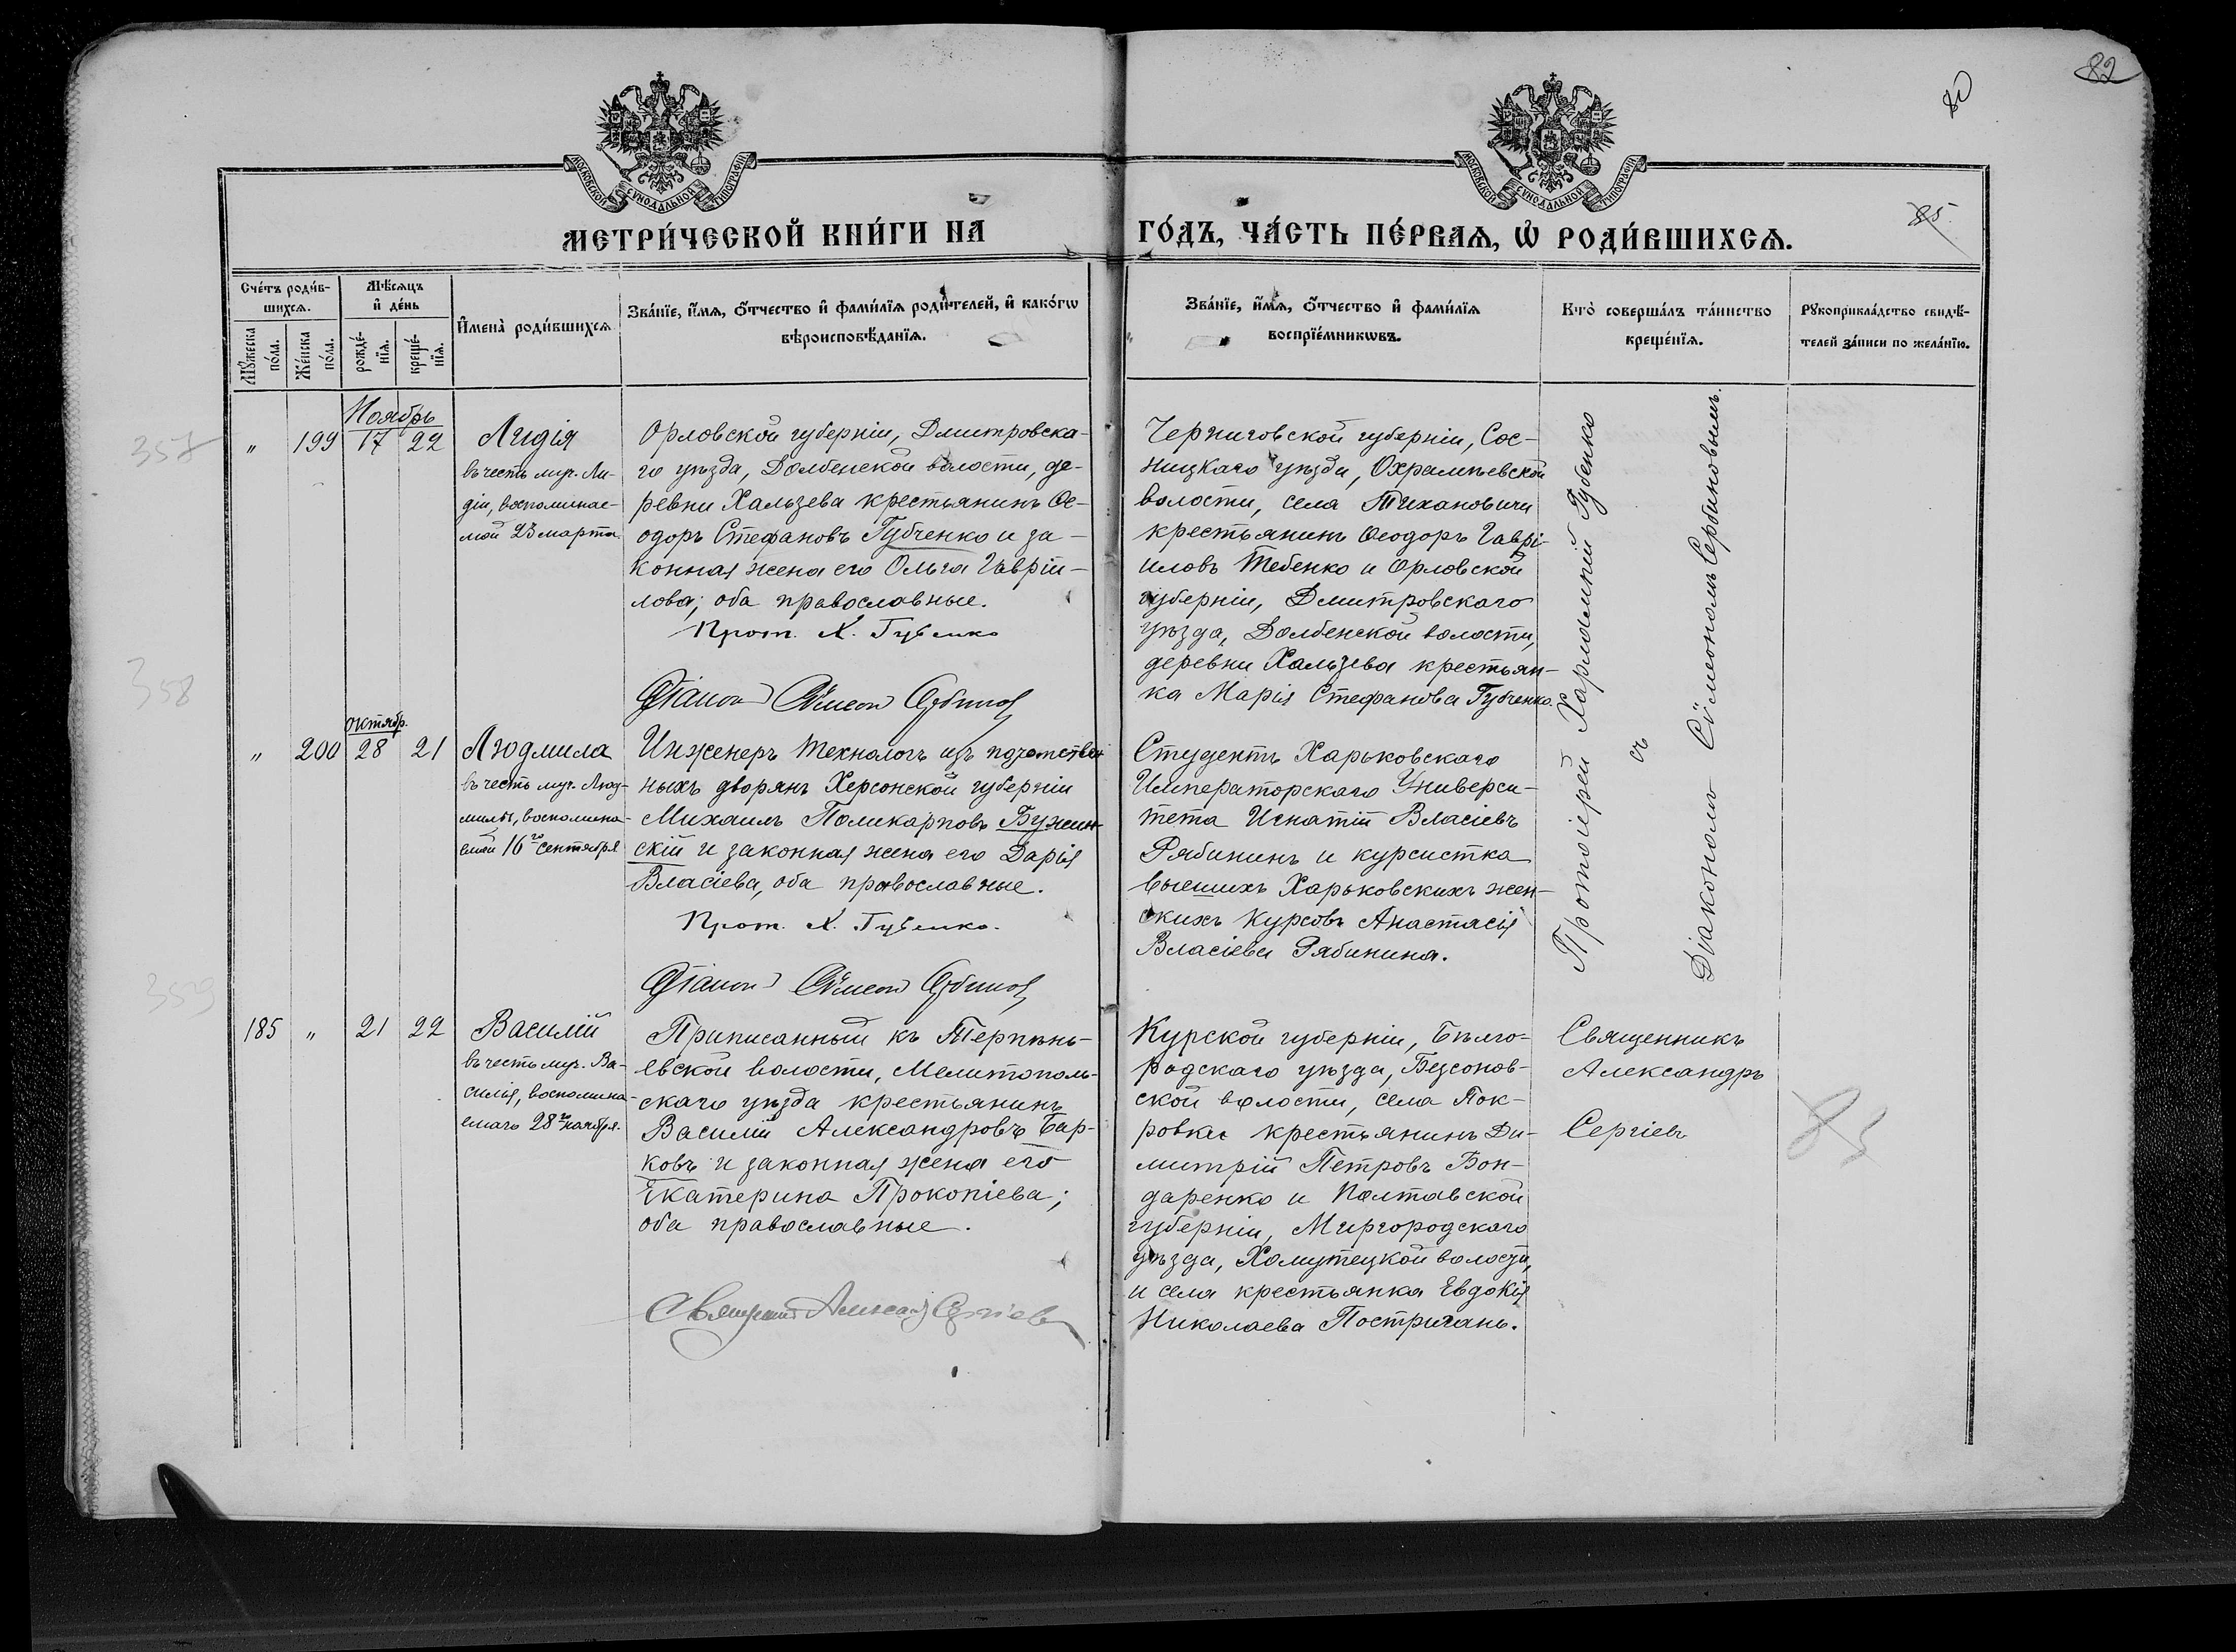 82
80
85
МОСКОВСКОЙ СѴНОДАЛЬНОЙ ТИПОГРАФІИ
МОСКОВСКОЙ СѴНОДАЛЬНОЙ ТИПОГРАФІИ
МЕТРИ́ЧЕСКОЙ КНИ́ГИ НА
ГО́ДЪ, ЧА́СТЬ ПЕ́РВАѦ, Ѡ҆ РОДИ́ВШИХСѦ.
Сче́тъ роди́в-
шихсѧ.
Мꙋ́жеска
по́ла.
Же́нска
по́ла.
Мѣ́сѧцъ
и҆ де́нь
рожде́-
нїѧ.
креще́-
нїѧ.
И҆мена̀ роди́вшихсѧ
Зва́нїе, и҆́мѧ, ѻ҆́тчество и҆ фами́лїѧ роди́телей, и҆ како́гѡ
вѣроисповѣ́данїѧ.
Зва́нїе, и҆́мѧ, ѻ҆́тчество и҆ фами́лїѧ
воспрїе́мникѡвъ.
Кто̀ соверша́лъ та́инство
креще́нїѧ.
Рꙋкоприкла́дство свидѣ́-
телей за́писи по жела́нїю.
357
Ноябрь
" 199 17 22
Лидія
въ честь муч. Ли-
діи, воспоминае-
мой 23 марта
Орловской губерніи, Дмитровска-
го уѣзда, Долбенской волости, де-
ревни Хальзева крестьянинъ Ѳе-
одоръ Стефановъ Губченко и за-
конная жена его Ольга Гавріи-
лова; оба православные.
Прот. Х. Губенко
Діаконъ Сѵмеонъ Сербиновъ
Черниговской губерніи, Сос-
ницкаго уѣзда, Охрамѣевской
волости, села Тихановичи
крестьянинъ Ѳеодоръ Гаврі-
иловъ Тебенко и Орловской
губерніи, Дмитровскаго
уѣзда, Долбенской волости,
деревни Хальзева крестьян-
ка Марія Стефанова Губченко.
Протоіерей Харлампій Губенко
съ
Діакономъ Сѵмеономъ Сербиновымъ.
358
октябр.
" 200 28 21
Людмила
въ честь муч. Люд-
милы, воспомина-
емой 16го сентября
Инженеръ Технологъ изъ потомствен
ныхъ дворянъ Херсонской губерніи
Михаилъ Поликарповъ Бужин-
скій и законная жена его Дарія
Власіева, оба православные.
Прот. Х. Губенко.
Діаконъ Сѵмеонъ Сербиновъ
Студентъ Харьковскаго
Императорскаго Универси-
тета Игнатій Власіевъ
Рябининъ и курсистка
высшихъ Харьковскихъ жен-
скихъ курсовъ Анастасія
Власіева Рябинина.
359
185 " 21 22
Василій
въ честь муч. Ва-
силія, воспомина-
емаго 28го ноября.
Приписанный къ Терпѣнь-
евской волости, Мелитополь-
скаго уѣзда крестьянинъ
Василій Александровъ Бар-
ковъ и законная жена его
Екатерина Прокопіева;
оба православные.
Священникъ Александръ Сергіевъ
Курской губерніи, Бѣлго-
родскаго уѣзда, Бессонов-
ской волости, села Пок-
ровки крестьянинъ Ди-
митрій Петровъ Бон-
даренко и Полтавской
губерніи, Миргородскаго
уѣзда, Хомутецкой волости,
и села крестьянка Евдокія
Николаева Постригань.
Священникъ
Александръ
Сергіевъ
85